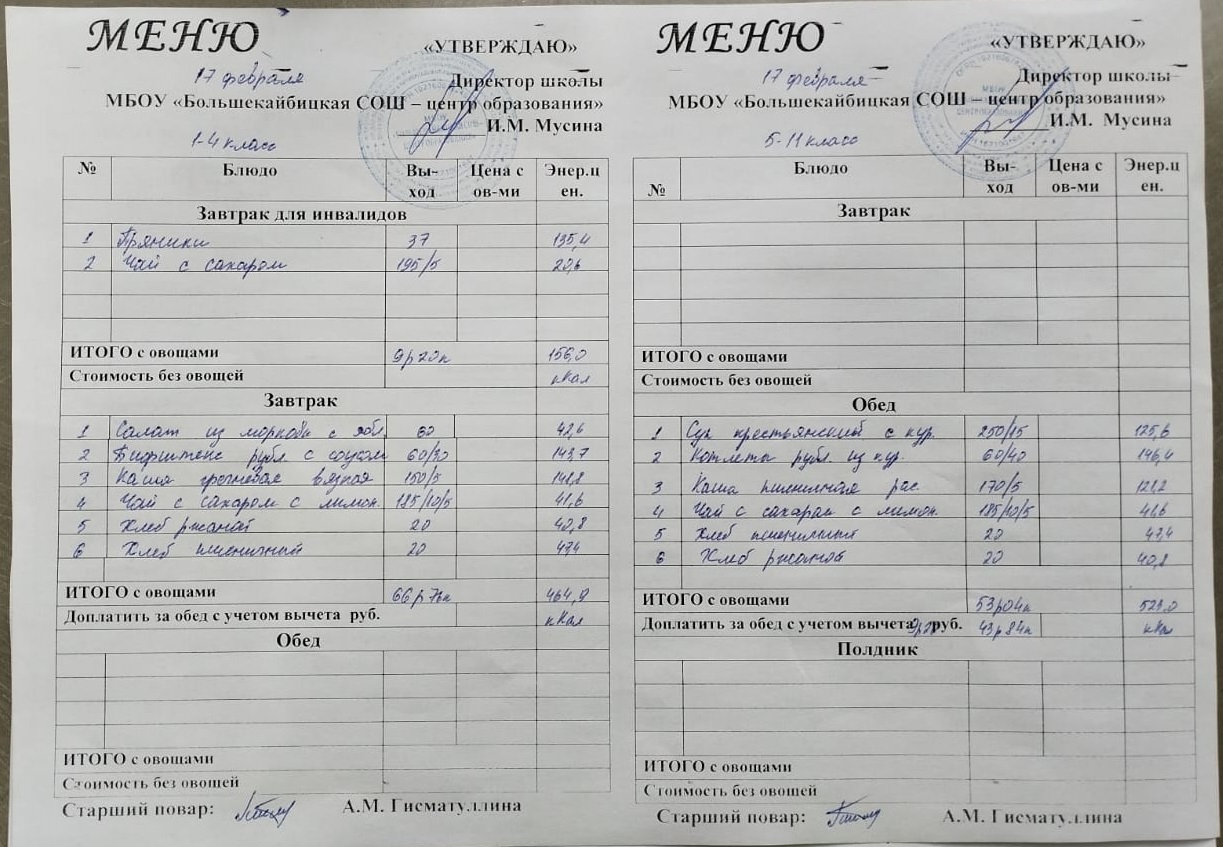 МЕНЮ
«УТВЕРЖДАЮ»
17 февраля
Директор школы
МБОУ «Большекайбицкая СОШ – центр образования»
И.М. Мусина
1-4 класс
№ Блюдо Вы-ход Цена с ов-ми Энер.ц ен.
Завтрак для инвалидов
1 Пряники 37 135,4
2 Чай с сахаром 195/5 20,6
ИТОГО с овощами 9р20к 156,0
Стоимость без овощей кКал
Завтрак
1 Салат из моркови с ябл. 60 42,6
2 Бифштекс рубл. с соусом 60/30 143,7
3 Каша гречневая вязкая 150/5 148,8
4 Чай с сахаром с лимон. 185/10/5 41,6
5 Хлеб ржаной 20 40,8
6 Хлеб пшеничный 20 47,4
ИТОГО с овощами 66р73к 464,9
Доплатить за обед с учетом вычета руб. кКал
Обед
ИТОГО с овощами
Стоимость без овощей
Старший повар: А.М. Гисматуллина
МЕНЮ
«УТВЕРЖДАЮ»
17 февраля
Директор школы
МБОУ «Большекайбицкая СОШ – центр образования»
И.М. Мусина
5-11 класс
№ Блюдо Вы-ход Цена с ов-ми Энер.ц ен.
Завтрак
ИТОГО с овощами
Стоимость без овощей
Обед
1 Суп крестьянский с кур. 250/15 125,6
2 Котлета рубл. из кур. 60/40 146,4
3 Каша пшеничная рас. 170/5 121,2
4 Чай с сахаром с лимон. 185/10/5 41,6
5 Хлеб пшеничный 20 47,4
6 Хлеб ржаной 20 40,8
ИТОГО с овощами 53р04к 523,0
Доплатить за обед с учетом вычета 9р20 руб. 43р84к кКал
Полдник
ИТОГО с овощами
Стоимость без овощей
Старший повар: А.М. Гисматуллина